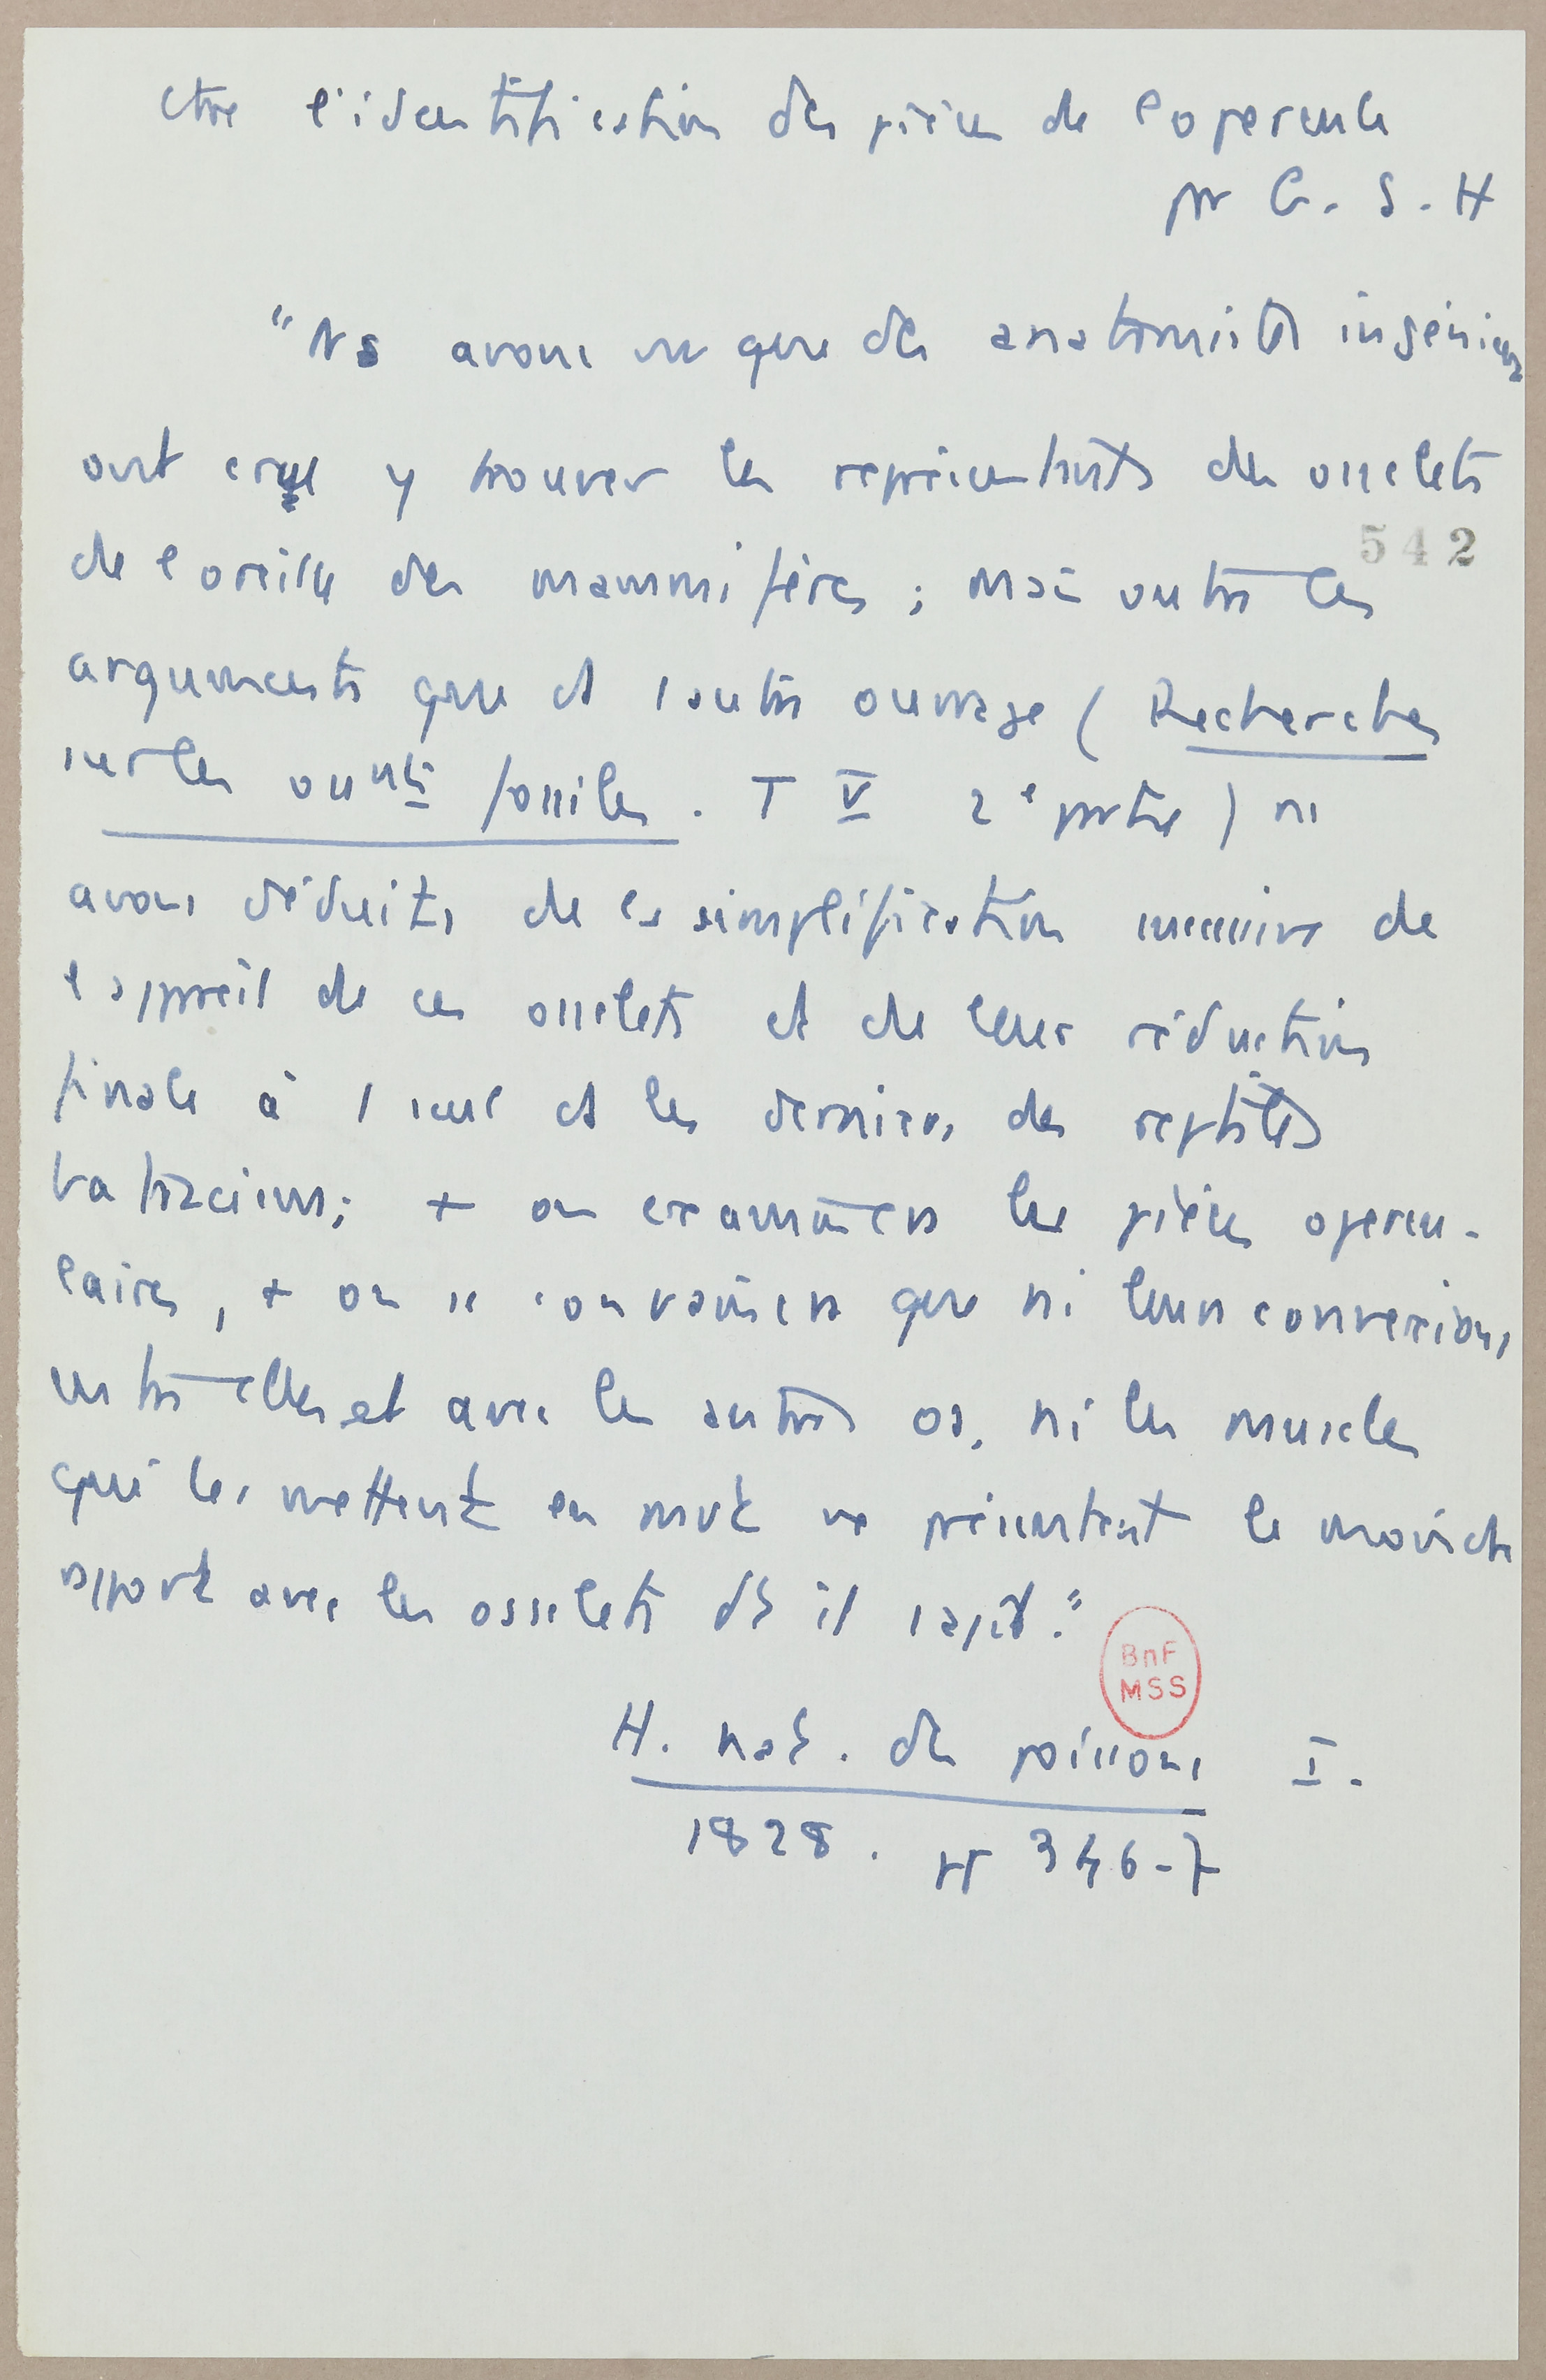 ctre l'identification des pièces de l'opercule
pr G. S. H
"Ns avons vu que des anatomistes ingénieux
ont cru y trouver les représentants des osselets
542
de l'oreille des mammifères ; mais outre les
arguments que ds 1 autre ouvrage ( Recherches
sur les ossnts fossiles . T V 2e partie ) ns
avons déduits de la simplification successive de
l'appareil de ces osselets et de leur réduction
finale à 1 seul ds les derniers des reptiles
batraciens ; + on examinera les pièces opercu-
laires, + on se convaincra que ni leurs connexions
entre elles et avec les autres os, ni les muscles
qui les mettent en mvt ne présentent le moindre
rapport avec les osselets ds il s'agit."
BnF
MSS
H. nat. des poissons I.
1828. pp 346-7